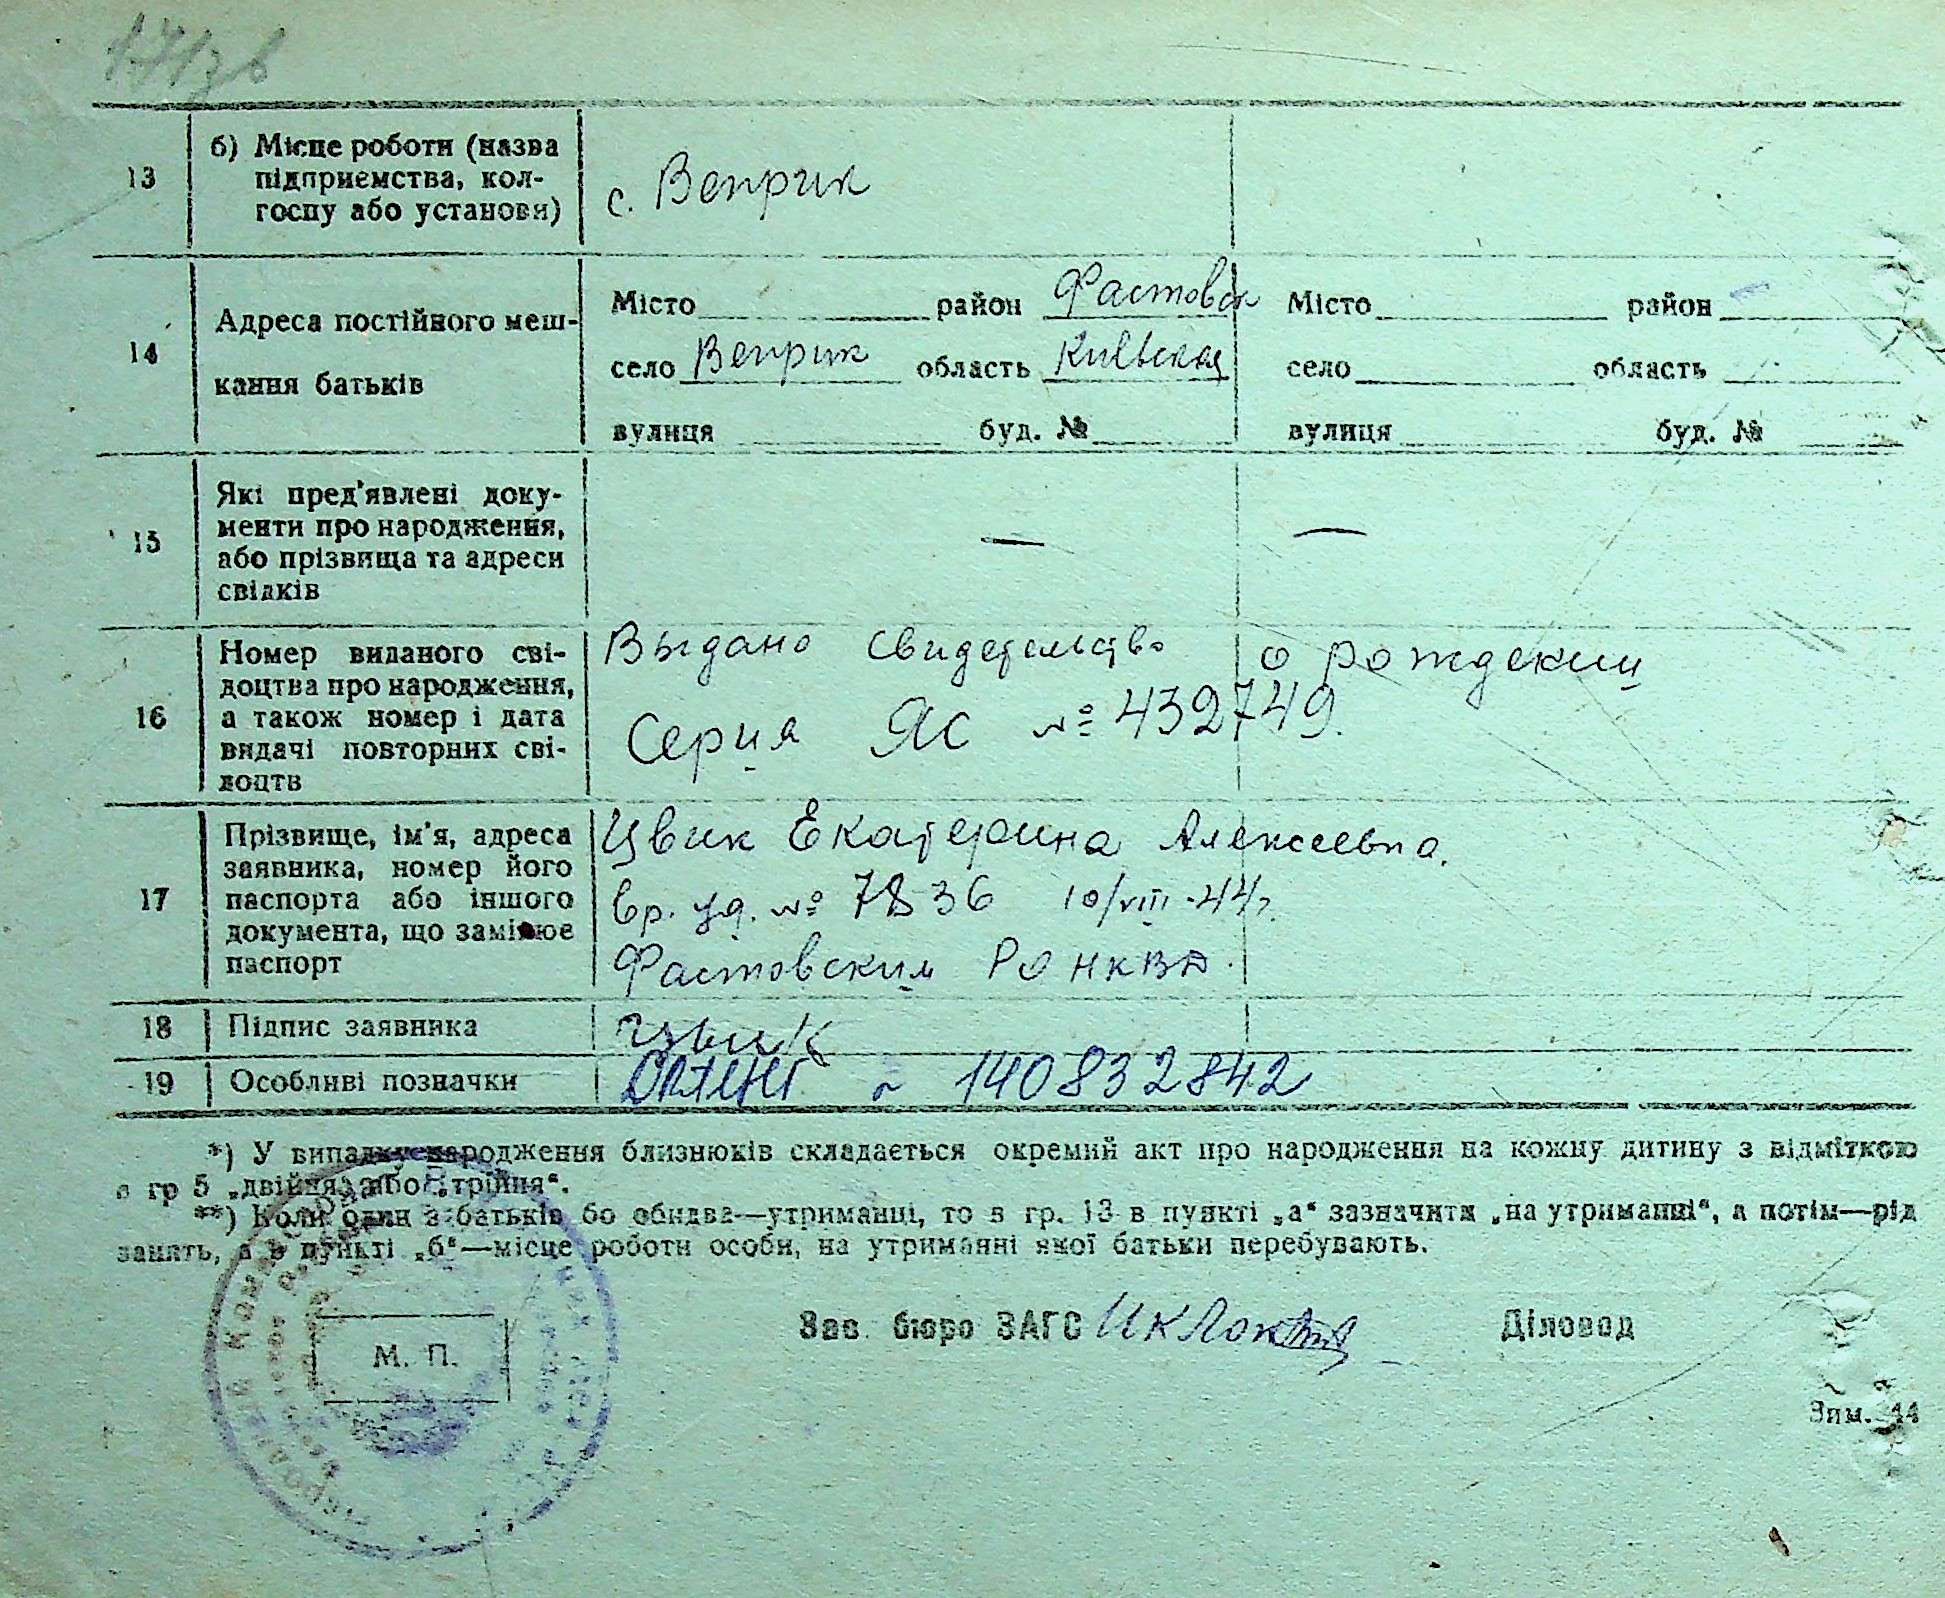 171зв
13
б) Місце роботи (назва
підприємства, кол-
госпу або установи)
с. Веприк
14
Адреса постійного меш-
кання батьків
Місто район Фастовск
село Веприк область Киевская
вулиця буд. №
Місто район
село область
вулиця буд. №
15
Які пред'явлені доку-
менти про народження,
або прізвища та адреси
свідків
— —
16
Номер виданого сві-
доцтва про народження,
а також номер і дата
видачі повторних сві-
доцтв
Выдано свидетельство о рождении
Серия ЯС № 432749.
17
Прізвище, ім'я, адреса
заявника, номер його
паспорта або іншого
документа, що замінює
паспорт
Цвик Екатерина Алексеевна.
вр. уд. № 7836 10/VIII-44г.
Фастовским РО НКВД.
18
Підпис заявника
Цвик
19
Особливі позначки
140832842
*) У випадку народження близнюків складається окремий акт про народження на кожну дитину з відміткою
в гр 5 „двійня, або „трійня“.
**) Коли один з батьків бо обидва—утриманці, то в гр. 13 в пункті „а“ зазначити „на утриманні“, а потім—рід
занять, а в пункті „б“—місце роботи особи, на утриманні якої батьки перебувають.
М. П.
Зав. бюро ЗАГС
Діловод
Зим. 44